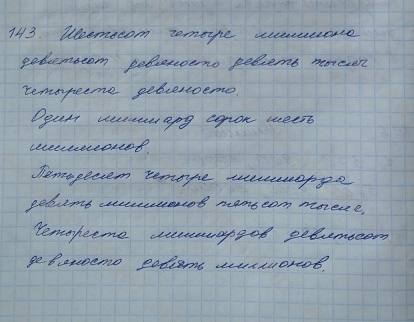 143. Шестьсот четыре миллиона
девятьсот девяносто девять тысяч
четыреста девяносто.
Один миллиард сорок шесть
миллионов.
Пятьдесят четыре миллиарда
девять миллионов пятьсот тысяч.
Четыреста миллиардов девятьсот
девяносто девять миллионов.